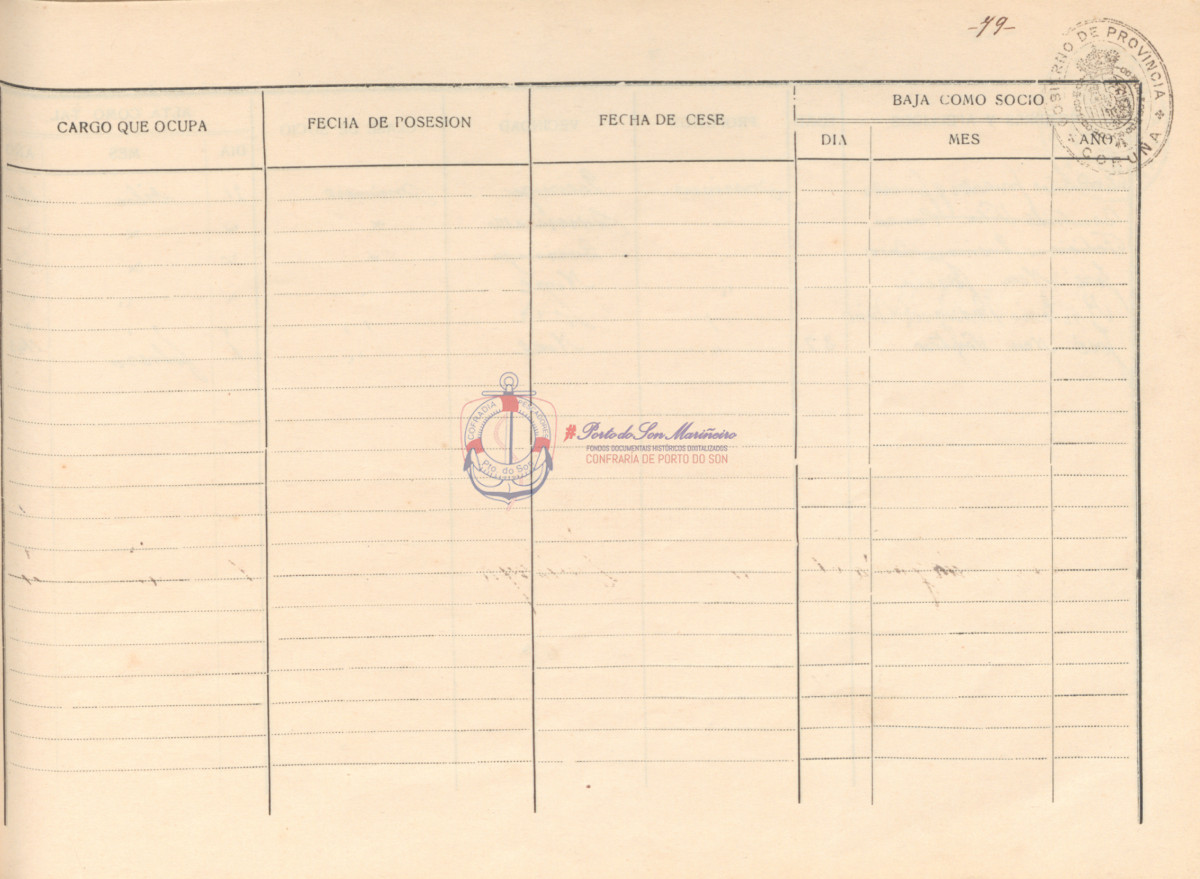 -79-
GOBIERNO DE PROVINCIA
CORUÑA
CARGO QUE OCUPA
FECHA DE POSESION
FECHA DE CESE
BAJA COMO SOCIO
DIA
MES
AÑO
COFRADIA
PESCADORES
Pto. do Son
#Porto do Son Mariñeiro
FONDOS DOCUMENTAIS HISTÓRICOS DIXITALIZADOS
CONFRARÍA DE PORTO DO SON